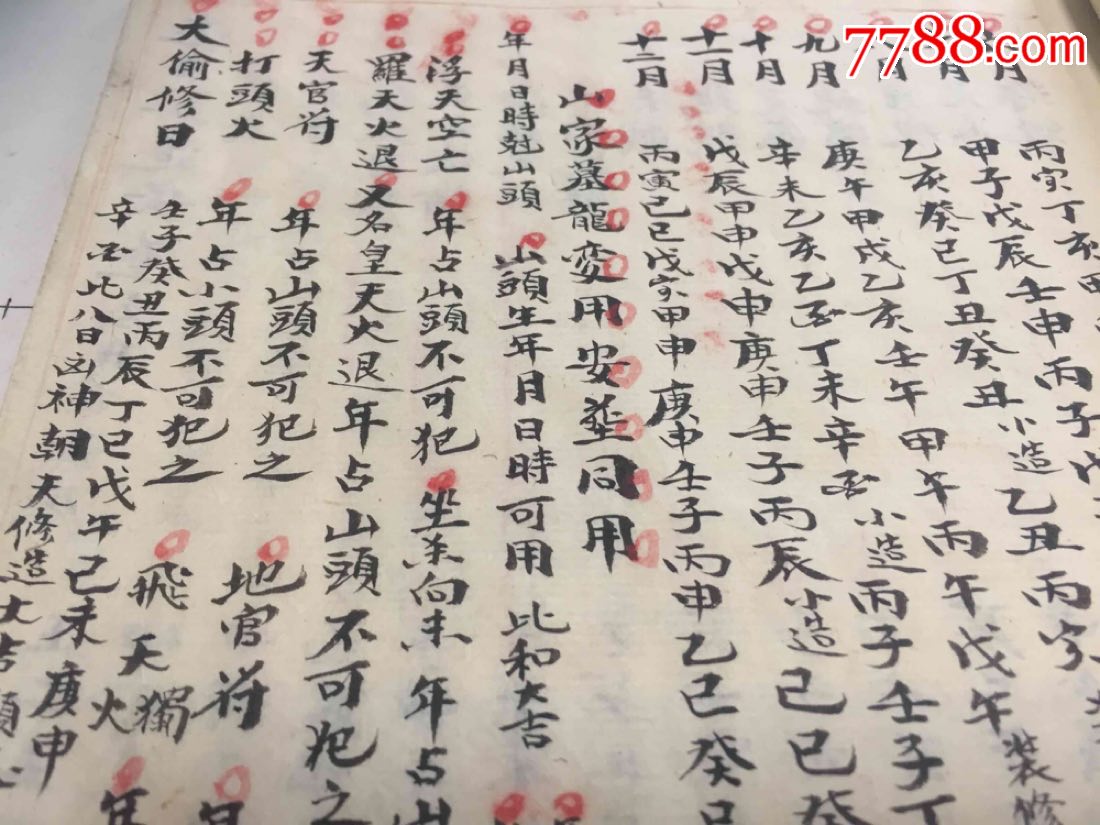 7788.com
月 丙寅丁亥
月 甲子戊辰壬申丙子
月 乙亥癸巳丁丑癸丑 小造 乙丑 丙
九月 庚午甲戌乙亥壬午甲午丙午戊午 裝修
十月 辛未乙亥乙酉丁未辛酉 小造 丙子壬子丁
十一月 戊辰甲申戊申庚申壬子丙辰 小造 己巳癸
十二月 丙寅己巳戊寅甲申庚申壬子丙申乙巳癸巳
山家墓龍变用安葬同用
年月日時尅山頭 山頭生年月日時可用 比和大吉
浮天空亡 年占山頭不可犯 坐杀向杀 年占山
羅天火退 又名皇天火退 年占山頭不可犯之
天官符 年占山頭不可犯之 地官符 年
打頭火 年占小頭不可犯之 飛天獨火 年
大偷修日 壬子癸丑丙辰丁巳戊午己未庚申
辛酉此八日凶神朝天修造大吉